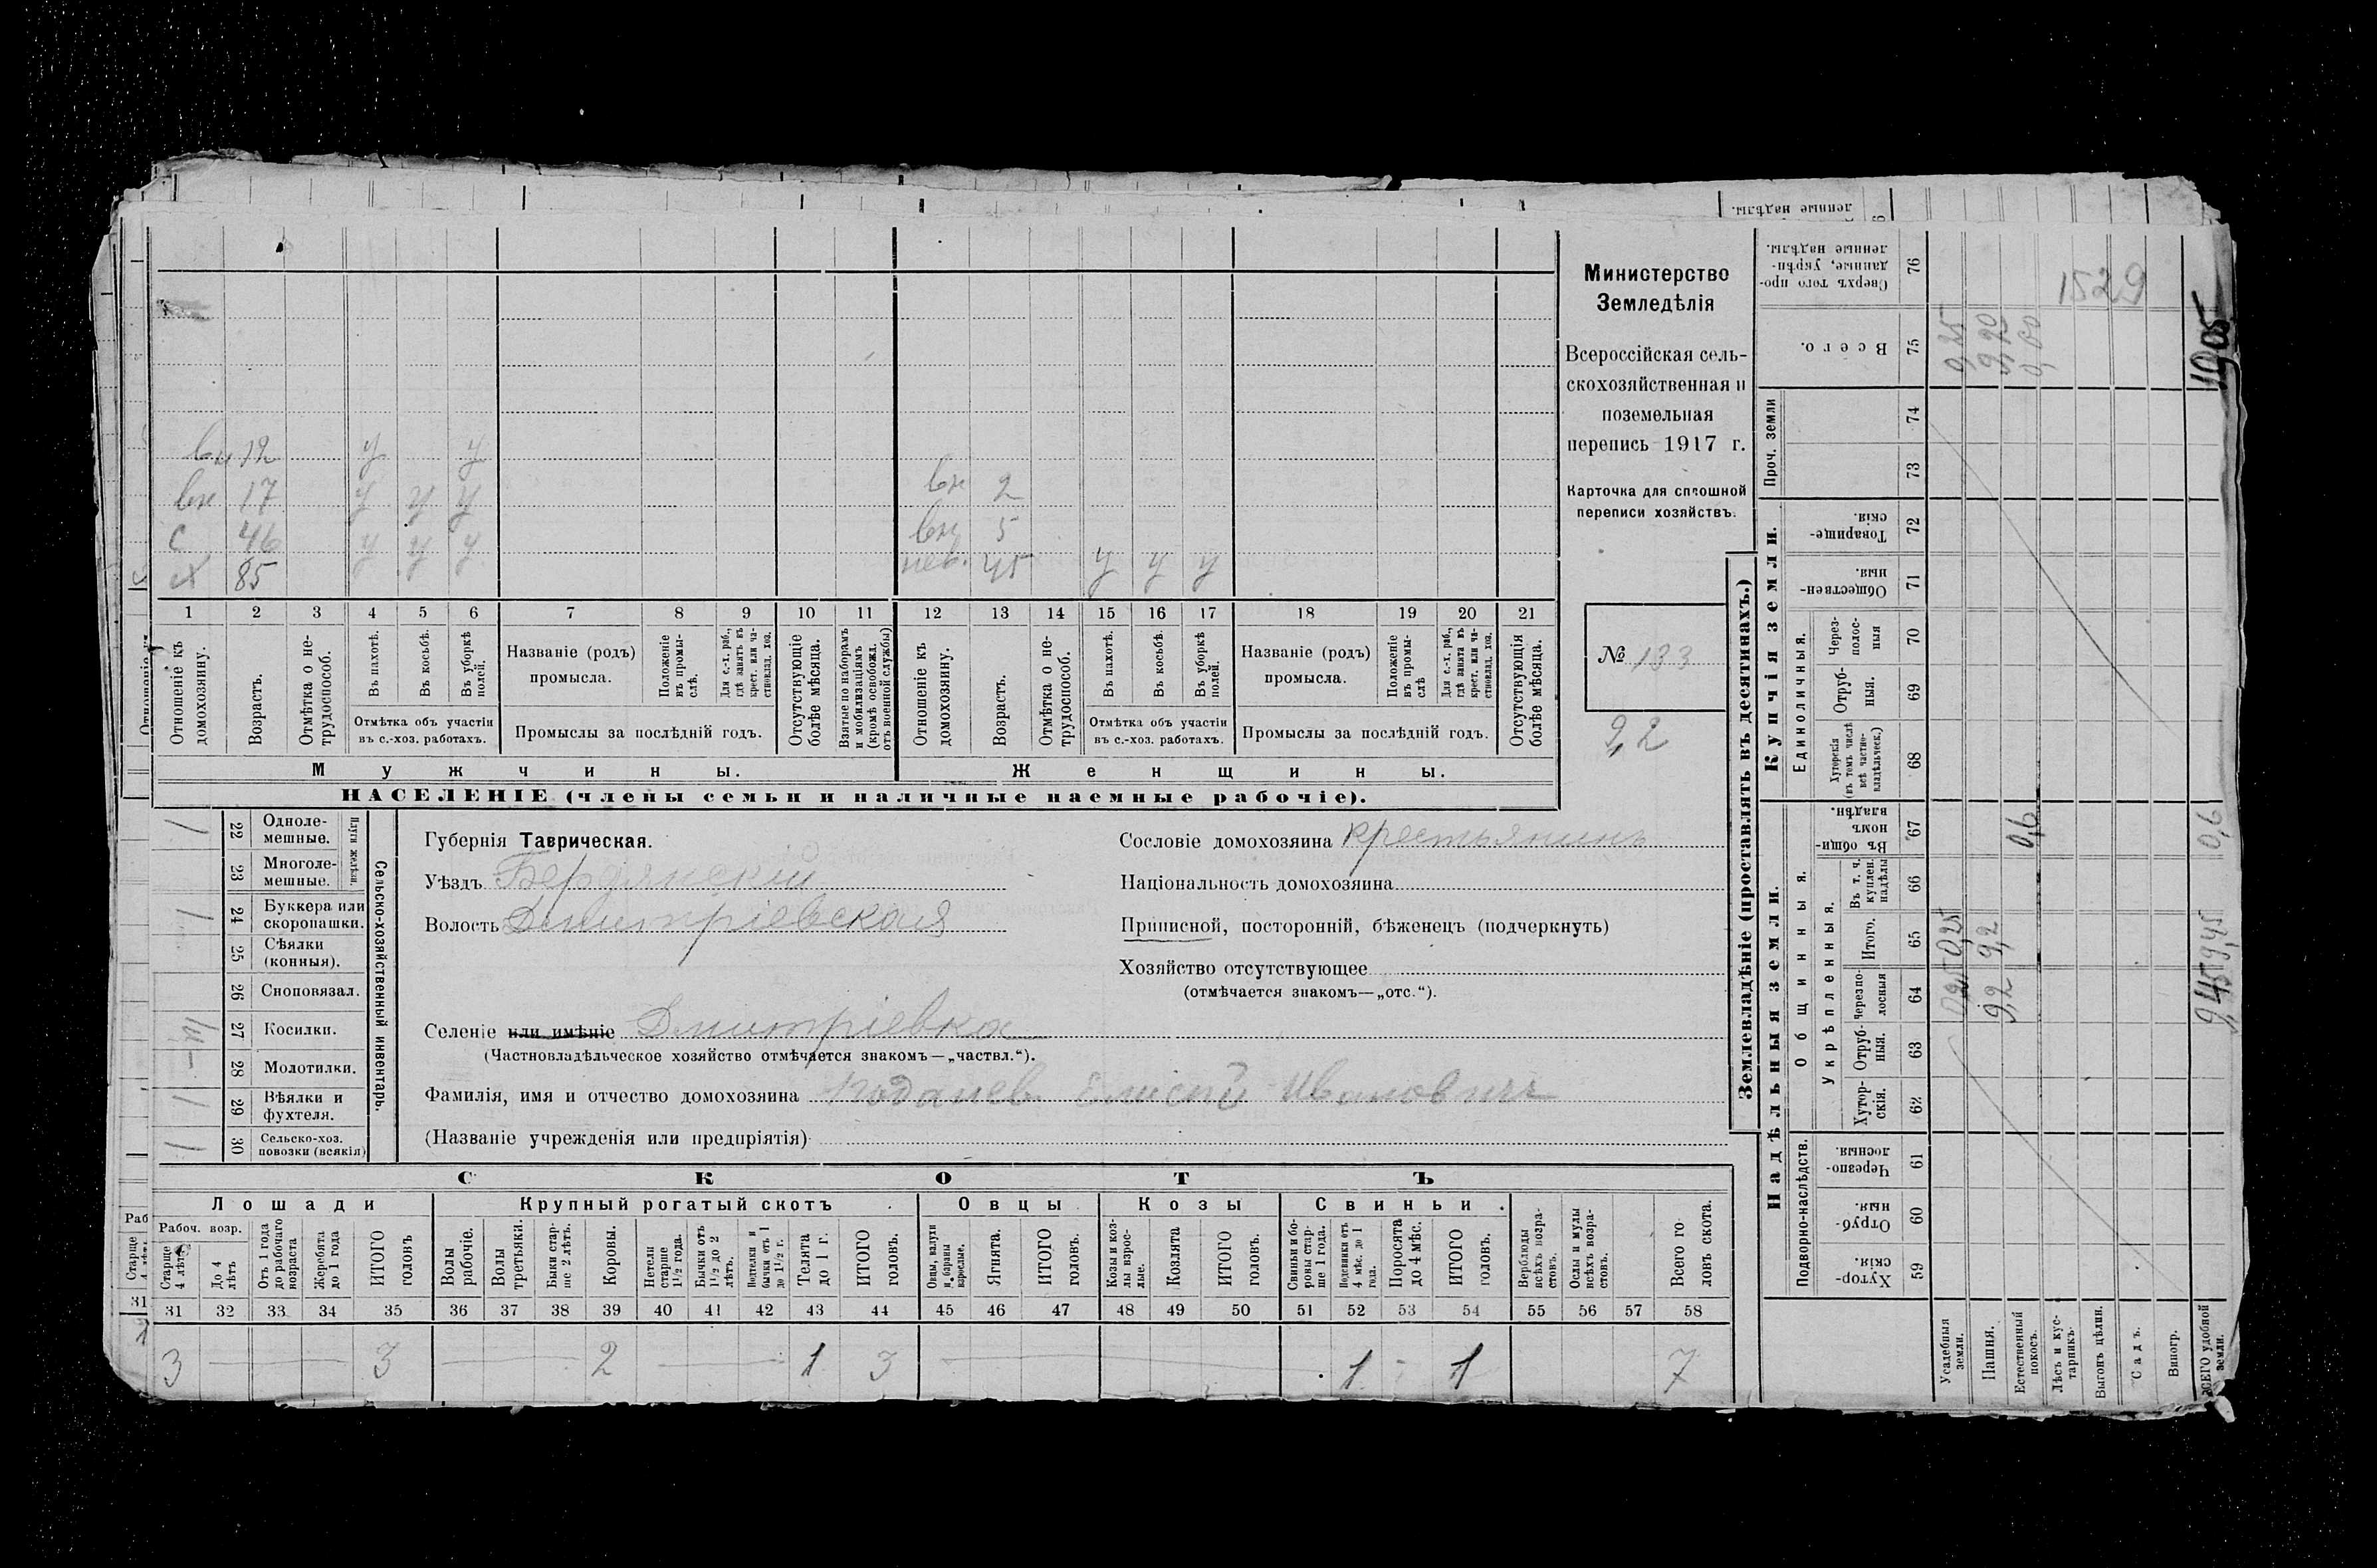 Министерство
Земледѣлія
Всероссійская сель-
скохозяйственная и
поземельная
перепись 1917 г.
Карточка для сплошной
переписи хозяйствъ.
№ 133
9,2
вн 12 у у
вн 17 у у у
с 46 у у у
х 85
вн 2
вн 5
нев. 45 у у у
1 2 3 4 5 6 7 8 9 10 11 12 13 14 15 16 17 18 19 20 21
Отношеніе къ домохозяину.
Возрастъ.
Отмѣтка о не-трудоспособ.
Въ пахотѣ.
Въ косьбѣ.
Въ уборкѣ полей.
Отмѣтка объ участіи
въ с.-хоз. работахъ.
Названіе (родъ)
промысла.
Положеніе въ промы-слѣ.
Для с.-х. раб., гдѣ занятъ въ крест. или ча-стновлад. хоз.
Промыслы за послѣдній годъ.
Отсутствующіе болѣе мѣсяца.
Взятые по наборамъ и мобилизаціямъ (кромѣ освобожд. отъ военной службы)
Отношеніе къ домохозяину.
Возрастъ.
Отмѣтка о не-трудоспособ.
Въ пахотѣ.
Въ косьбѣ.
Въ уборкѣ полей.
Отмѣтка объ участіи
въ с.-хоз. работахъ.
Названіе (родъ)
промысла.
Положеніе въ промы-слѣ
Для с.-х. раб., гдѣ занята въ крест. или ча-стновлад. хоз.
Промыслы за послѣдній годъ.
Отсутствующія болѣе мѣсяца.
Мужчины.
Женщины.
НАСЕЛЕНІЕ (члены семьи и наличные наемные рабочіе).
Сельско-хозяйственный инвентарь.
Плуги желѣзн.
22 Одноле-мешные. 1
23 Многоле-мешные.
24 Буккера или скоропашки. 1
25 Сѣялки (конныя).
26 Сноповязал.
27 Косилки.
28 Молотилки.
29 Вѣялки и фухтеля. 1
30 Сельско-хоз. повозки (всякія) 1
Губернія Таврическая.
Уѣздъ Бердянскій
Волость Дмитріевская
Селеніе или имѣніе Дмитріевка
(Частновладѣльческое хозяйство отмѣчается знакомъ—„частвл.“).
Фамилія, имя и отчество домохозяина Иванович
(Названіе учрежденія или предпріятія)
Сословіе домохозяина крестьянинъ
Національность домохозяина
Приписной, посторонній, бѣженецъ (подчеркнуть)
Хозяйство отсутствующее
(отмѣчается знакомъ—„отс.“).
СКОТЪ
Лошади
Крупный рогатый скотъ
Овцы
Козы
Свиньи.
Рабоч. возр.
Старше 4 лѣтъ
До 4 лѣтъ
Отъ 1 года до рабочаго возраста
Жеребята до 1 года
ИТОГО головъ
Волы рабочіе.
Волы третьяки.
Быки стар-ше 2 лѣтъ.
Коровы.
Нетели старше 1½ года.
Бычки отъ 1½ до 2 лѣтъ.
Подтелки и бычки отъ 1 до 1½ г.
Телята до 1 г.
ИТОГО головъ.
Овцы, валухи и бараны взрослые.
Ягнята.
ИТОГО головъ.
Козы и коз-лы взрос-лые.
Козлята
ИТОГО головъ.
Свиньи и бо-ровы стар-ше 1 года.
Подсвинки отъ 4 мѣс. до 1 года.
Поросята до 4 мѣс.
ИТОГО головъ.
Верблюды всѣхъ возра-стовъ.
Ослы и мулы всѣхъ возра-стовъ.
Всего го ловъ скота.
31 32 33 34 35 36 37 38 39 40 41 42 43 44 45 46 47 48 49 50 51 52 53 54 55 56 57 58
3 3 2 1 3 1 1 7
Землевладѣніе (проставлять въ десятинахъ.)
Купчія земли.
Надѣльныя земли.
Проч. земли
Единоличныя.
Общинныя.
Укрѣпленныя.
Подворно-наслѣдств.
76 Сверхъ того про-данные, укрѣп-ленные надѣлы.
75 Всего.
74
73
72 Товарище-скія.
71 Обществен-ныя.
70 Через-полос-ныя
69 Отруб-ныя.
68 Хуторскія (въ томъ числѣ всѣ частно-владѣльческ.)
67 Въ общин-номъ владѣн.
66 Въ т. ч. куплен. надѣлы
65 Итого.
64 Черезпо-лосныя
63 Отруб-ныя.
62 Хутор-скія.
61 Черезпо-лосныя.
60 Отруб-ныя.
59 Хутор-скія.
Усадебныя земли. 0,25 0,25 0,25
Пашня. 9,2 9,2 9,20
Естественный покосъ. 0,6 0,60
Лѣсъ и кус-тарникъ.
Выгонъ цѣлин.
Садъ.
Виногр.
ВСЕГО удобной земли. 9,45 9,45 0,6 10,05
1529